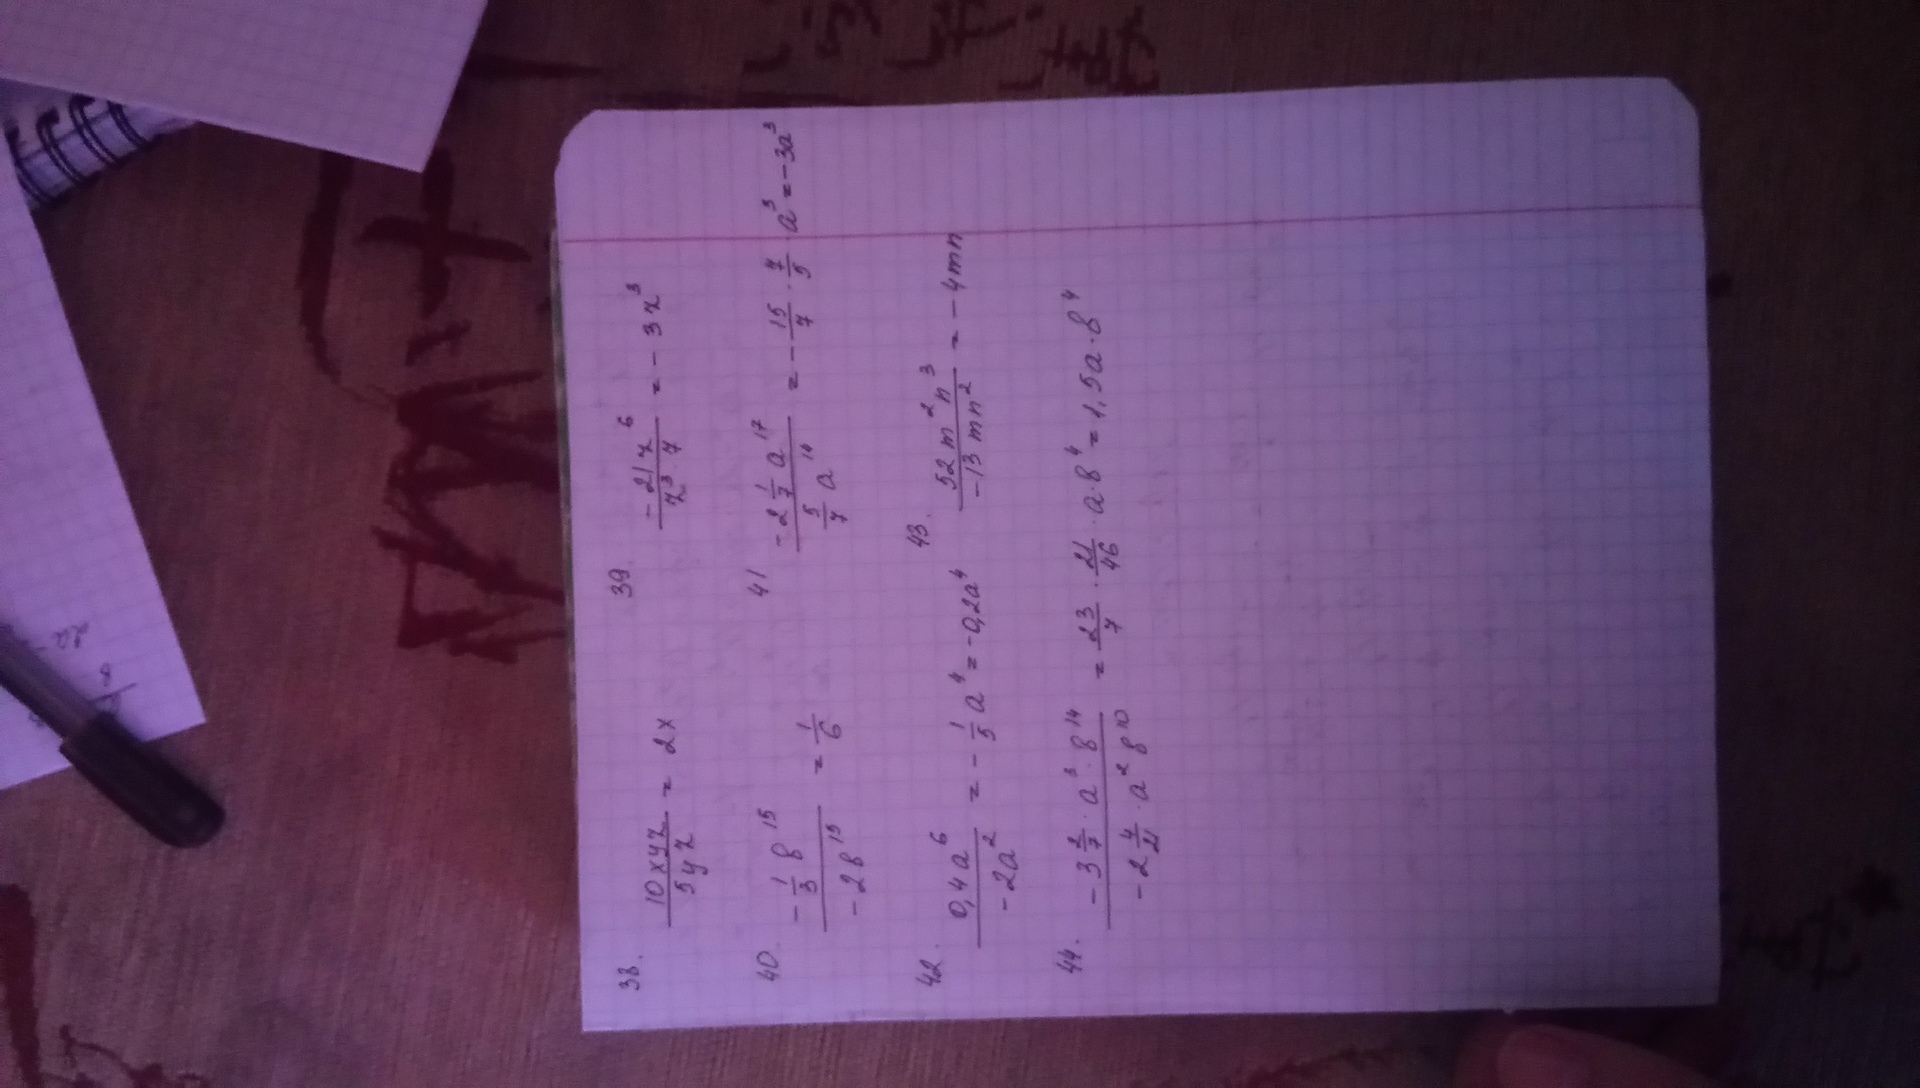 38. 10xyz / 5yz = 2x
39. -21z^6 / z^3·7 = -3z^3
40. -1/3 в^15 / -2в^15 = 1/6
41 -2 1/7 a^17 / 5/7 a^14 = -15/7 · 7/5 · a^3 = -3a^3
42. 0,4a^6 / -2a^2 = -1/5 a^4 = -0,2a^4
43. 52m^2n^3 / -13mn^2 = -4mn
44. -3 2/7 · a^3 · в^14 / -2 4/21 · a^2 в^10 = 23/7 · 21/46 · a·в^4 = 1,5a·в^4